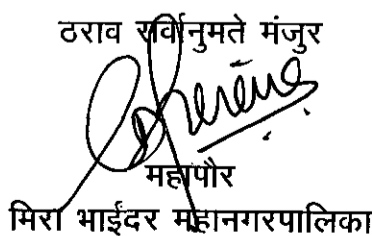 ठराव सर्वानुमते मंजुर
महापौर
मिरा भाईंदर महानगरपालिका